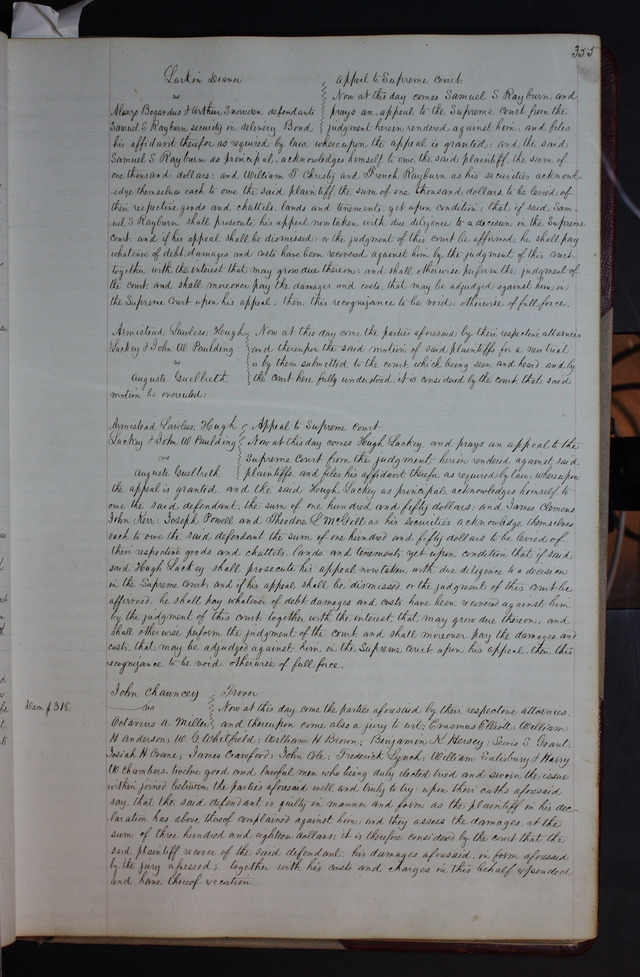 355
Larkin Deaver } Appeal to Supreme Court.
vs } Now at this day comes Samuel S Rayburn and
Alonzo Bogardus & Arthur Snowden defendants } prays an appeal to the Supreme Court from the
Samuel S Rayburn security on delivery Bond } judgment herein rendered against him, and files
his affidavit therefor as required by law, whereupon the appeal is granted, and the said
Samuel S Rayburn as principal, acknowledges himself to owe the said plaintiff the sum of
one thousand dollars: and William T Christy and French Rayburn as his securities acknowl-
edge themselves each to owe the said plaintiff the sum of one thousand dollars to be levied of
their respective goods and chattels, lands and tenements, yet upon condition, that if said Sam-
uel S Rayburn shall prosecute his appeal now taken with due diligence to a decision in the Supreme
Court, and if his appeal shall be dismissed, or the judgment of this court be affirmed he shall pay
whatever of debt, damages and costs have been recovered against him by the judgment of this court,
together with the interest that may grow due thereon; and shall otherwise perform the judgment of
the court and shall moreover pay the damages and costs, that may be adjudged against him in
the Supreme Court upon his appeal; then this recognizance to be void, otherwise of full force.
Armestead Lawless, Hough } Now at this day come the parties aforesaid by their respective attornies
Lackey & John W Paulding } and thereupon the said motion of said plaintiffs for a new trial
vs } is by them submitted to the court, which being seen and heard and by
Auguste Guelbreth } the court here fully understood, it is considered by the court that said
motion be overruled.
Armestead Lawless, Hough } Appeal to Supreme Court
Lackey & John W Paulding } Now at this day comes Hough Lackey, and prays an appeal to the
vs } Supreme Court from the judgment herein rendered against said
Auguste Guelbreth } plaintiffs, and files his affidavit therefor as required by law, whereupon
the appeal is granted, and the said Hough Lackey as principal, acknowledges himself to
owe the said defendant, the sum of one hundred and fifty dollars; and James Clemens
John Kerr, Joseph Powell and Theodore L McGill as his securities acknowledge themselves
each to owe the said defendant the sum of one hundred and fifty dollars to be levied of
their respective goods and chattels, lands and tenements, yet upon condition that if said
said Hough Lackey shall prosecute his appeal now taken with due diligence to a decision
in the Supreme Court, and if his appeal shall be dismissed, or the judgment of this court be
affirmed, he shall pay whatever of debt damages and costs have been recovered against him
by the judgment of this court, together with the interest that may grow due thereon, and
shall otherwise perform the judgment of the court, and shall moreover pay the damages and
costs, that may be adjudged against him in the Supreme Court upon his appeal, then this
recognizance to be void, otherwise of full force.
John Chauncey } Trover
Dam $318. vs } Now at this day come the parties aforesaid by their respective attornies,
Octavius A Miller } and thereupon come also a jury to wit; Erasmus Elliott, William
H Anderson, W G Whitfield, William H Brown, Benjamin K Hersey, Lewis S Grant,
Josiah H Crane, James Crawford, John Cole, Frederick Lynch, William Salisbury & Harry
W Chambers, twelve good and lawful men who being duly elected tried and sworn the issue
within joined between the parties aforesaid well and truly to try, upon their oaths aforesaid
say, that the said defendant is guilty in manner and form as the plaintiff in his dec-
laration has above thereof complained against him, and they assess the damages at the
sum of three hundred and eighteen dollars; it is therefore considered by the court that the
said plaintiff recover of the said defendant, his damages aforesaid, in form aforesaid
by the jury assessed; together with his costs and charges in this behalf expended
and have thereof execution.